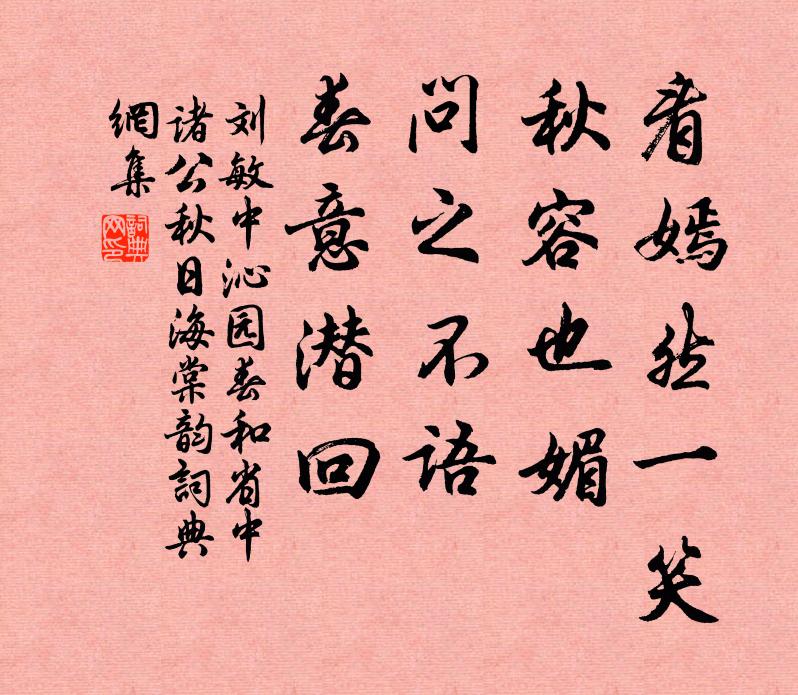 看嫣然一笑
秋容也媚
问之不语
春意潜回
刘敏中沁园春和省中
诸公秋日海棠韵詞典
網集
詞典
网印